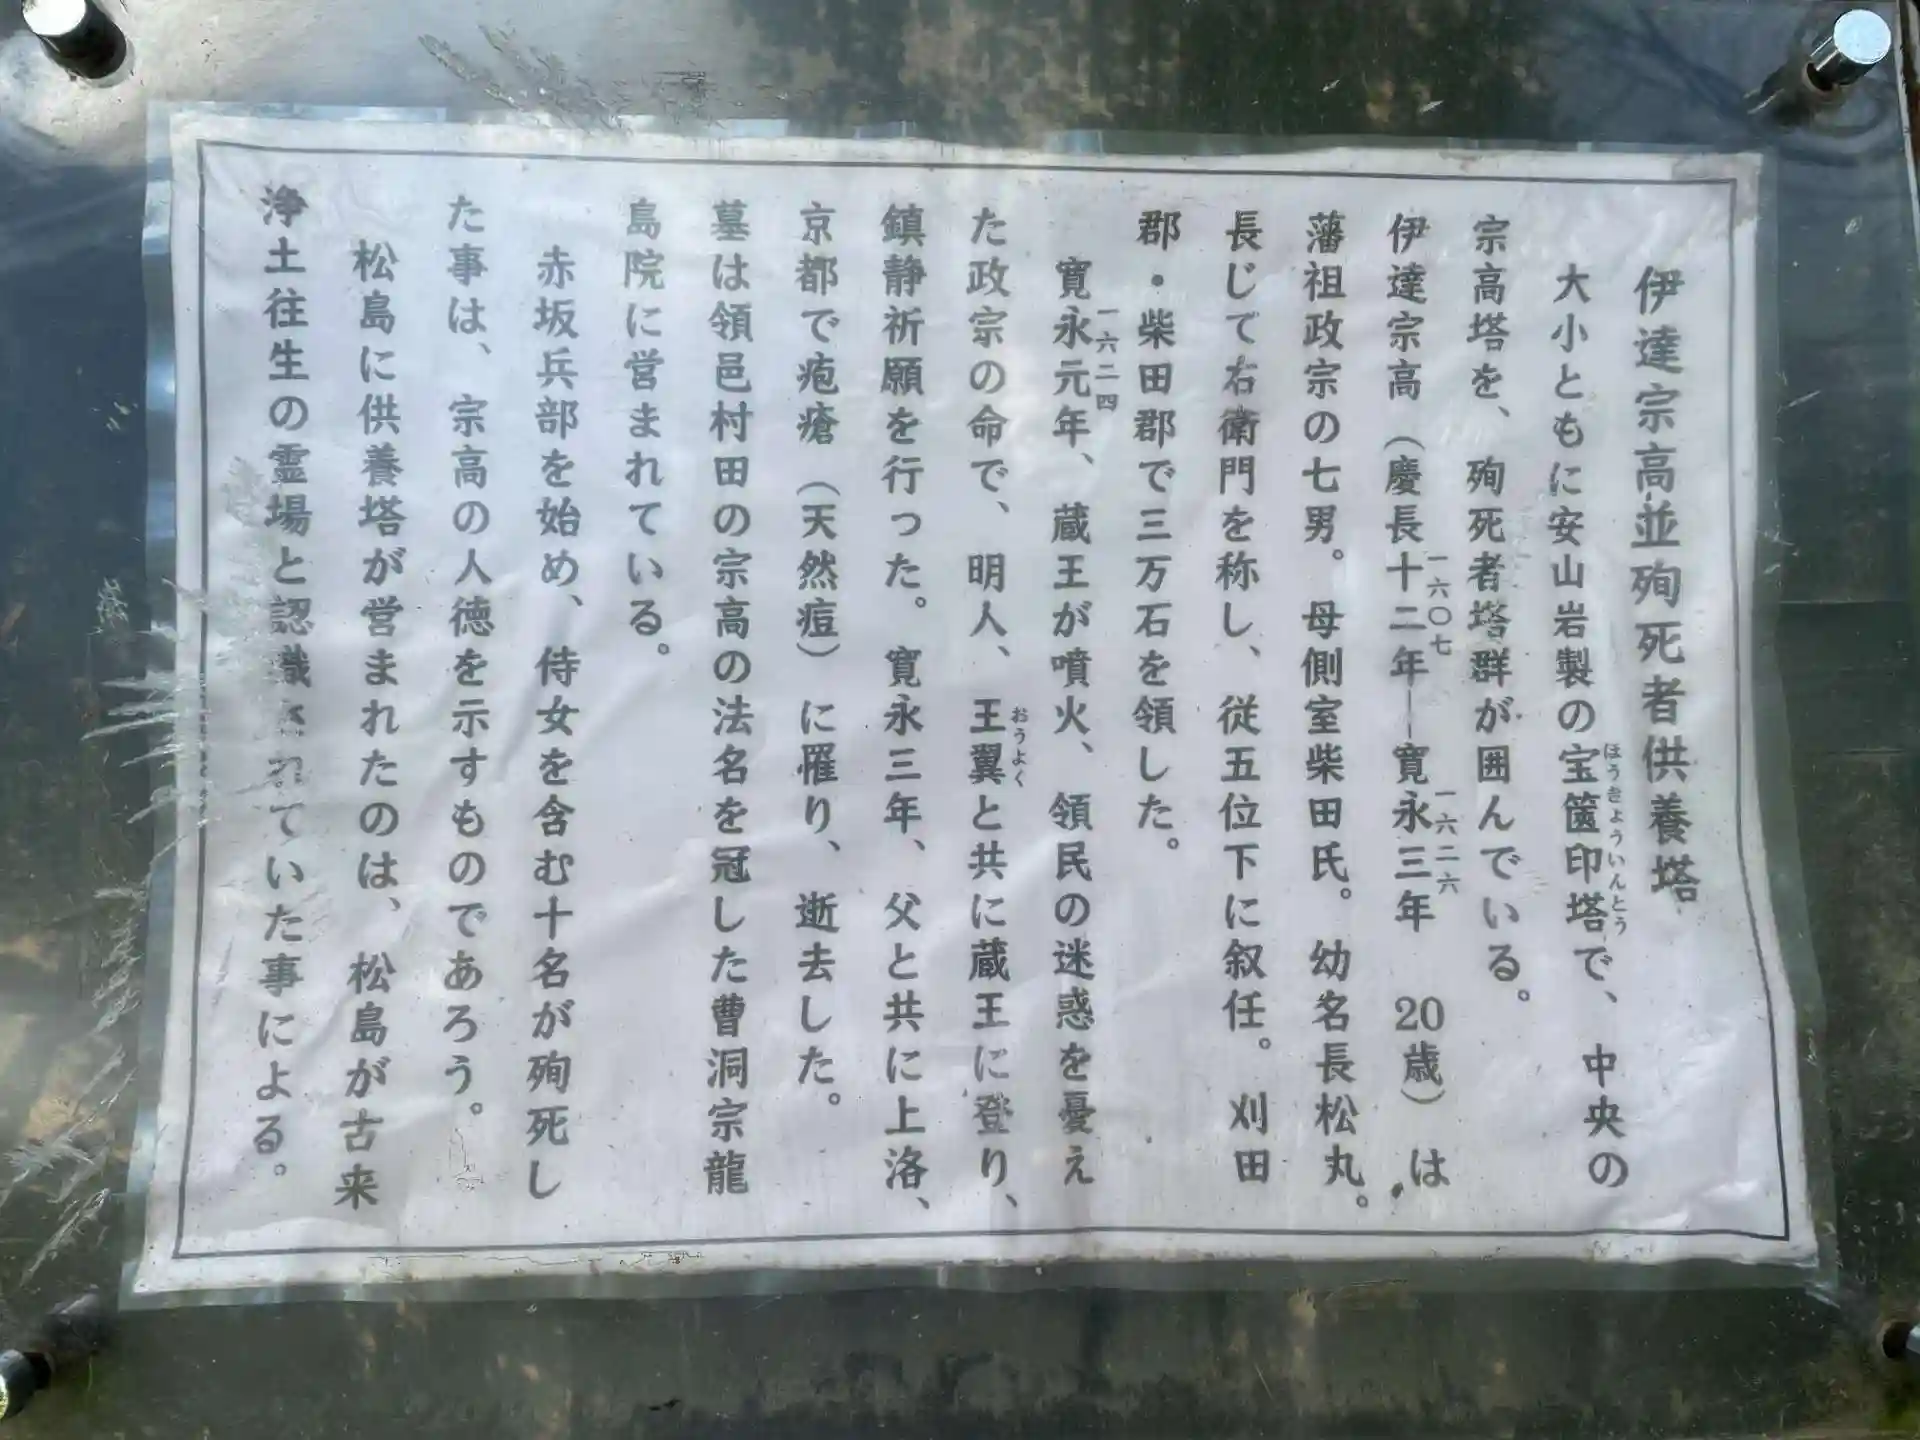 伊達宗高並殉死者供養塔
大小ともに安山岩製の宝篋印塔で、中央の
ほうきょういんとう
宗高塔を、殉死者塔群が囲んでいる。
伊達宗高（慶長十二年―寛永三年　20歳）は
一六〇七
一六二六
藩祖政宗の七男。母側室柴田氏。幼名長松丸。
長じて右衛門を称し、従五位下に叙任。刈田
郡・柴田郡で三万石を領した。
寛永元年、蔵王が噴火、領民の迷惑を憂え
一六二四
た政宗の命で、明人、王翼と共に蔵王に登り、
おうよく
鎮静祈願を行った。寛永三年、父と共に上洛、
京都で疱瘡（天然痘）に罹り、逝去した。
墓は領邑村田の宗高の法名を冠した曹洞宗龍
島院に営まれている。
赤坂兵部を始め、侍女を含む十名が殉死し
た事は、宗高の人徳を示すものであろう。
松島に供養塔が営まれたのは、松島が古来
浄土往生の霊場と認識されていた事による。